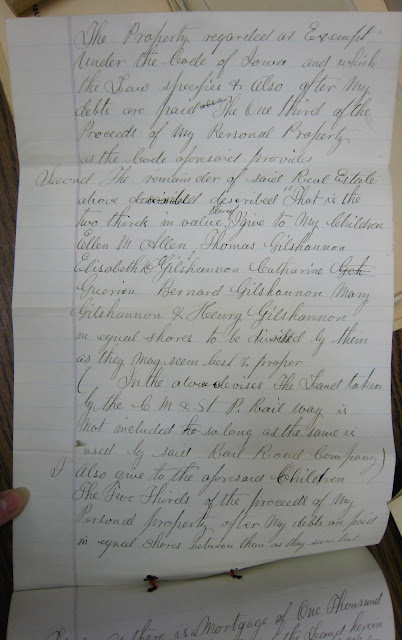 The Property regarded as Exempt
under the Code of Iowa and which
the Law specifies & also after My
debts are paid also The One third of the
Proceeds of My Personal Property
as the Code aforesaid provides
Second The remainder of said Real Estate
above described described "That is the
two thirds in value thereof I give to My Children
Ellen M Allen Thomas Gilshannon
Elisabeth Gilshannon Catharine
Guerien Bernard Gilshannon Mary
Gilshannon & Henry Gilshannon
in equal shares to be divided by them
as they may seem best & proper
( In the above devises The Land taken
by the C M & St P. Rail way is
not included so long as the same is
used by said Rail Road Company)
I Also give to the aforesaid Children
The Two Thirds of the proceeds of My
Personal property after My debts are paid
in equal shares between them as they seem best
there is a Mortgage of One Thousand
herein